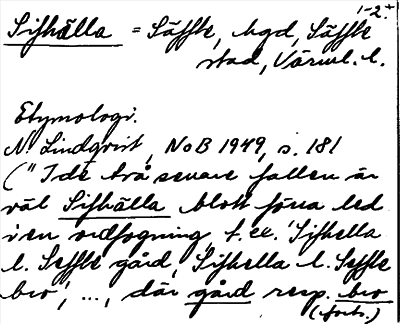 1-2.+
Sifhälla = Säffle, hgd, Säffle
stad, Värml. l.
Etymologi.
N. Lindqvist, NoB 1949, s. 181
("I de två senare fallen är
väl Sifhälla blott förra led
i en ordfogning, t.ex. 'Sifhella
l. Seffle gård', 'Sifhella l. Seffle
bro', ..., där gård resp. bro
(forts.)